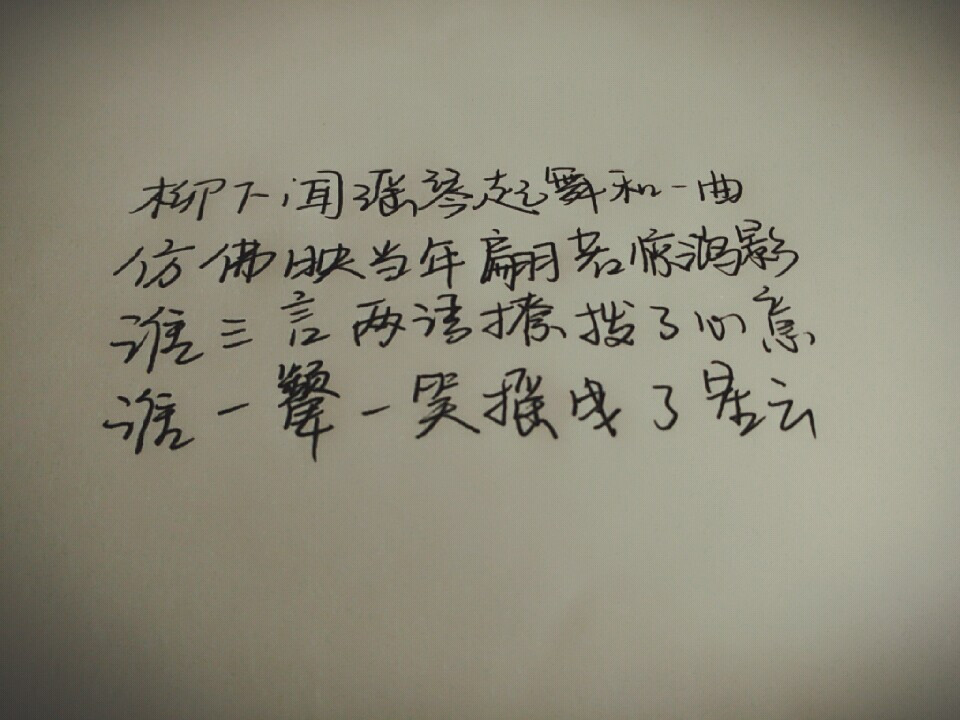 柳下闻瑶琴起舞和一曲
仿佛映当年翩若惊鸿影
谁三言两语撩拨了心意
谁一颦一笑摇曳了星云